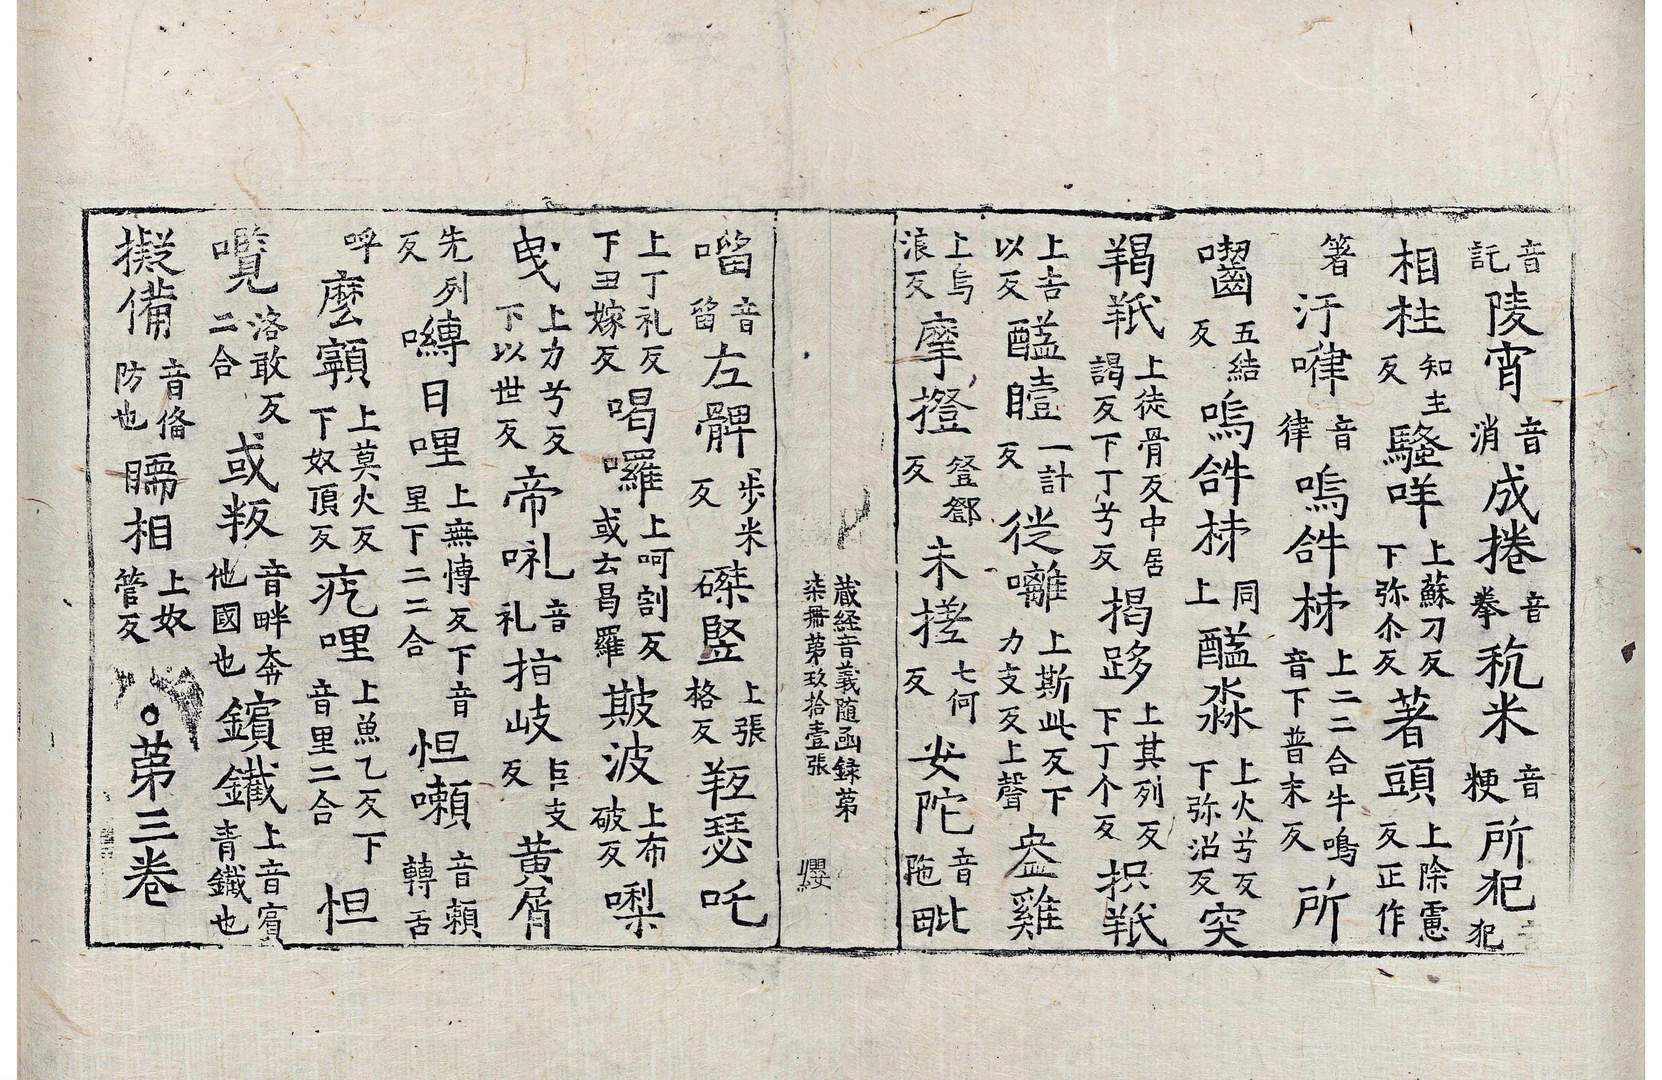 音託陵宵音消成捲音拳秔米音粳所犯音犯
相柱知主反騷咩上蘇刀反下弥尒反著頭上除慮反正作
箸汙嘽音律嗚𪡀㭉上二二合牛鳴音下普末反所
囓五結反嗚𪡀㭉同上醯淼上火兮反下弥沼反突
羯羝上徒骨反中居謁反下丁兮反揭跢上其列反下丁个反抧羝
上吉以反醯瞌一計反従囄上斯此反下力支反上聲盎雞
上烏浪反摩撜登鄧反未搓七何反安陀音陁毗
蔵経音義随函録第
柒冊第玖拾壹張
纓
㗰音留左髀歩米反磔豎上張格反羥瑟吒
上丁礼反下丑嫁反喝囉上呵割反或云曷羅𤿎波上布破反㗚
曳上力兮反下以世反帝㘑音礼指岐巨支反黄屑
先列反囀日哩上無博反下音里下二二合怛嚩音頼轉舌
呼麽顐上莫火反下奴頂反疙哩上魚乙反下音里二合怛
囕洛敢反二合或叛音畔奔他國也鑌鐵上音賓青鐵也
擬備音俻防也𦟛相上奴管反○苐三巻